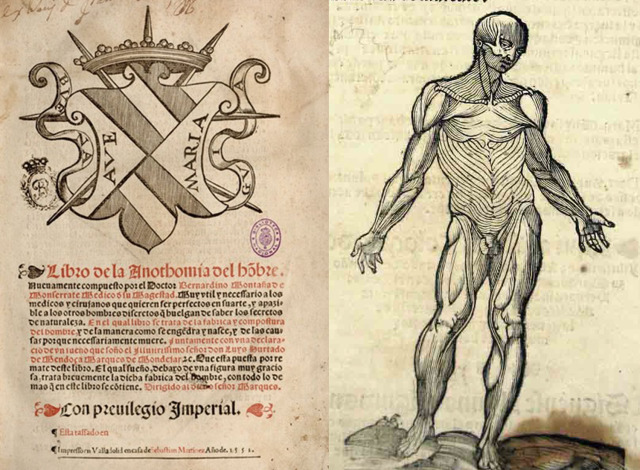 AVE
MARIA
Libro de la Anothomia del hõbre.
Nueuamente compuesto por el Doctor Bernardino Montaña de
Monserrate Medico d̃ su Magestad. Muy vtil y necessario a los
medicos y cirujanos que quieren ser perfectos en su arte, y apazi-
ble a los otros hombres discretos q̃ huelgan de saber los secretos
de naturaleza. En el qual libro se trata de la fabrica y compostura
del hombre, y de la manera como se engẽdra y nasce, y de las cau-
sas porque necessariamente muere. Juntamente con vna decla-
racio de vn sueño que soño el Illustrissimo señor don Luys Hurtado
de Mendoça Marques de Mondejar ꝛc. Que esta puesta por re
mate deste libro. El qual sueño, debaxo de vna figura muy gracio
sa, trata breuemente la dicha fabrica del hombre, con todo lo de
mas q̃ en este libro se cõtiene. Dirigido al señor Marques.
Con preuilegio Imperial.
¶ Esta tassado en
¶ Impresso en Valladolid en casa de Sebastian Martinez Año de. 1551.